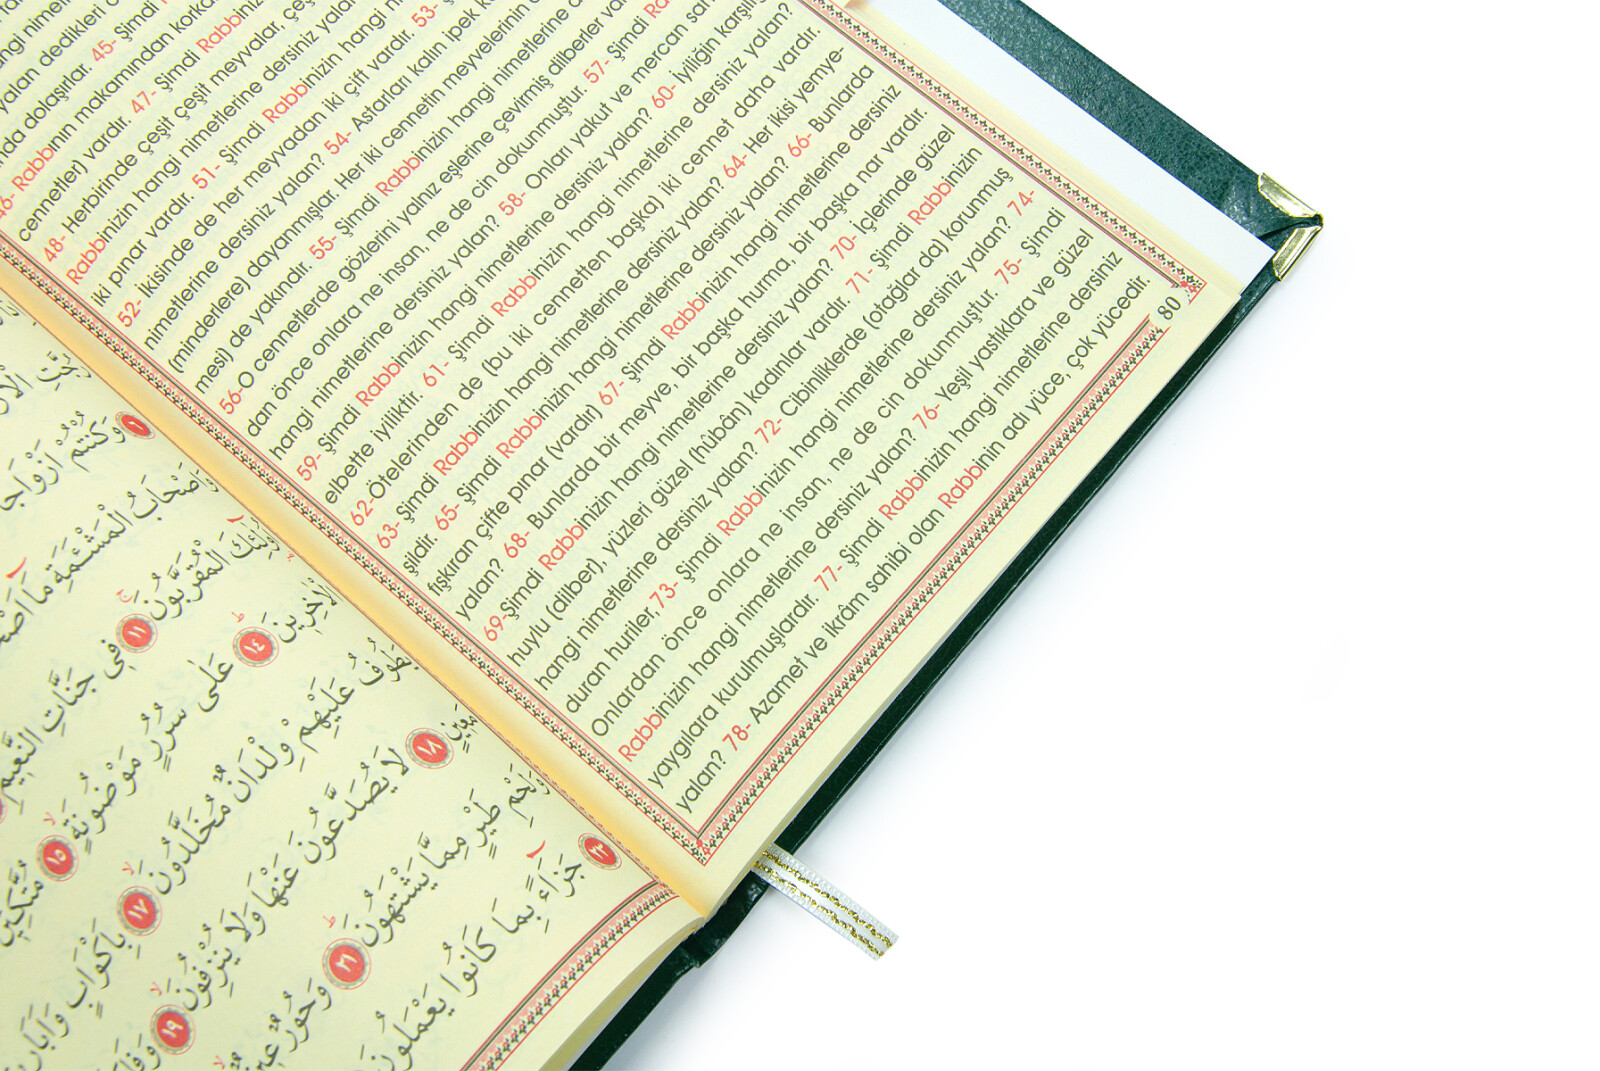 yalan dedikleri
45- Şimdi
nda dolaşırlar.
46- Rabbının makamından korkan
cennetler) vardır. 47- Şimdi Rabbinizin
48- Herbirinde çeşit çeşit meyvalar, çeşit
Rabbinizin hangi nimetlerine dersiniz yalan
iki pınar vardır. 51- Şimdi Rabbinizin hangi
52- İkisinde de her meyvadan iki çift vardır. 53- Ş
nimetlerine dersiniz yalan? 54- Astarları kalın ipek k
(minderlere) dayanmışlar. Her iki cennetin meyvelerinin
mesi) de yakındır. 55- Şimdi Rabbinizin hangi nimetlerine
56-O cennetlerde gözlerini yalnız eşlerine çevirmiş dilberler var
dan önce onlara ne insan, ne de cin dokunmuştur. 57- Şimdi Ra
hangi nimetlerine dersiniz yalan? 58- Onları yakut ve mercan san
59- Şimdi Rabbinizin hangi nimetlerine dersiniz yalan? 60- İyiliğin karşılığı
elbette iyiliktir. 61- Şimdi Rabbinizin hangi nimetlerine dersiniz yalan?
62-Ötelerinden de (bu iki cennetten başka) iki cennet daha vardır.
63- Şimdi Rabbinizin hangi nimetlerine dersiniz yalan? 64- Her ikisi yemye-
şildir. 65- Şimdi Rabbinizin hangi nimetlerine dersiniz yalan? 66- Bunlarda
fışkıran çifte pınar (vardır) 67- Şimdi Rabbinizin hangi nimetlerine dersiniz
yalan? 68- Bunlarda bir meyve, bir başka hurma, bir başka nar vardır.
69-Şimdi Rabbinizin hangi nimetlerine dersiniz yalan? 70- İçlerinde güzel
huylu (dilber), yüzleri güzel (hûbân) kadınlar vardır. 71- Şimdi Rabbinizin
hangi nimetlerine dersiniz yalan? 72- Cibinliklerde (otağlar da) korunmuş
duran huriler,73- Şimdi Rabbinizin hangi nimetlerine dersiniz yalan? 74-
Onlardan önce onlara ne insan, ne de cin dokunmuştur. 75- Şimdi
Rabbinizin hangi nimetlerine dersiniz yalan? 76- Yeşil yastıklara ve güzel
yaygılara kurulmuşlardır. 77- Şimdi Rabbinizin hangi nimetlerine dersiniz
yalan? 78- Azamet ve ikrâm sahibi olan Rabbinin adı yüce, çok yücedir.
80
وَكُنْتُمْ اَزْوَاجًا
وَاَصْحَابُ الْمَشْئَمَةِ مَٓا
الْمُقَرَّبُونَ ﴿١١﴾ فٖى جَنَّاتِ النَّعٖيمِ
الْاٰخِرٖينَ ﴿١٤﴾ عَلٰى سُرُرٍ مَوْضُونَةٍ ﴿١٥﴾ مُتَّكِـٖٔينَ
يَطُوفُ عَلَيْهِمْ وِلْدَانٌ مُخَلَّدُونَ ﴿١٧﴾ بِاَكْوَابٍ وَاَبَارٖيقَ
مَعٖينٍ ﴿١٨﴾ لَا يُصَدَّعُونَ عَنْهَا وَلَا يُنْزِفُونَ ﴿١٩﴾
وَلَحْمِ طَيْرٍ مِمَّا يَشْتَهُونَ ﴿٢١﴾ وَحُورٌ عٖينٌ
﴿٢٣﴾ جَزَٓاءً بِمَا كَانُوا يَعْمَلُونَ